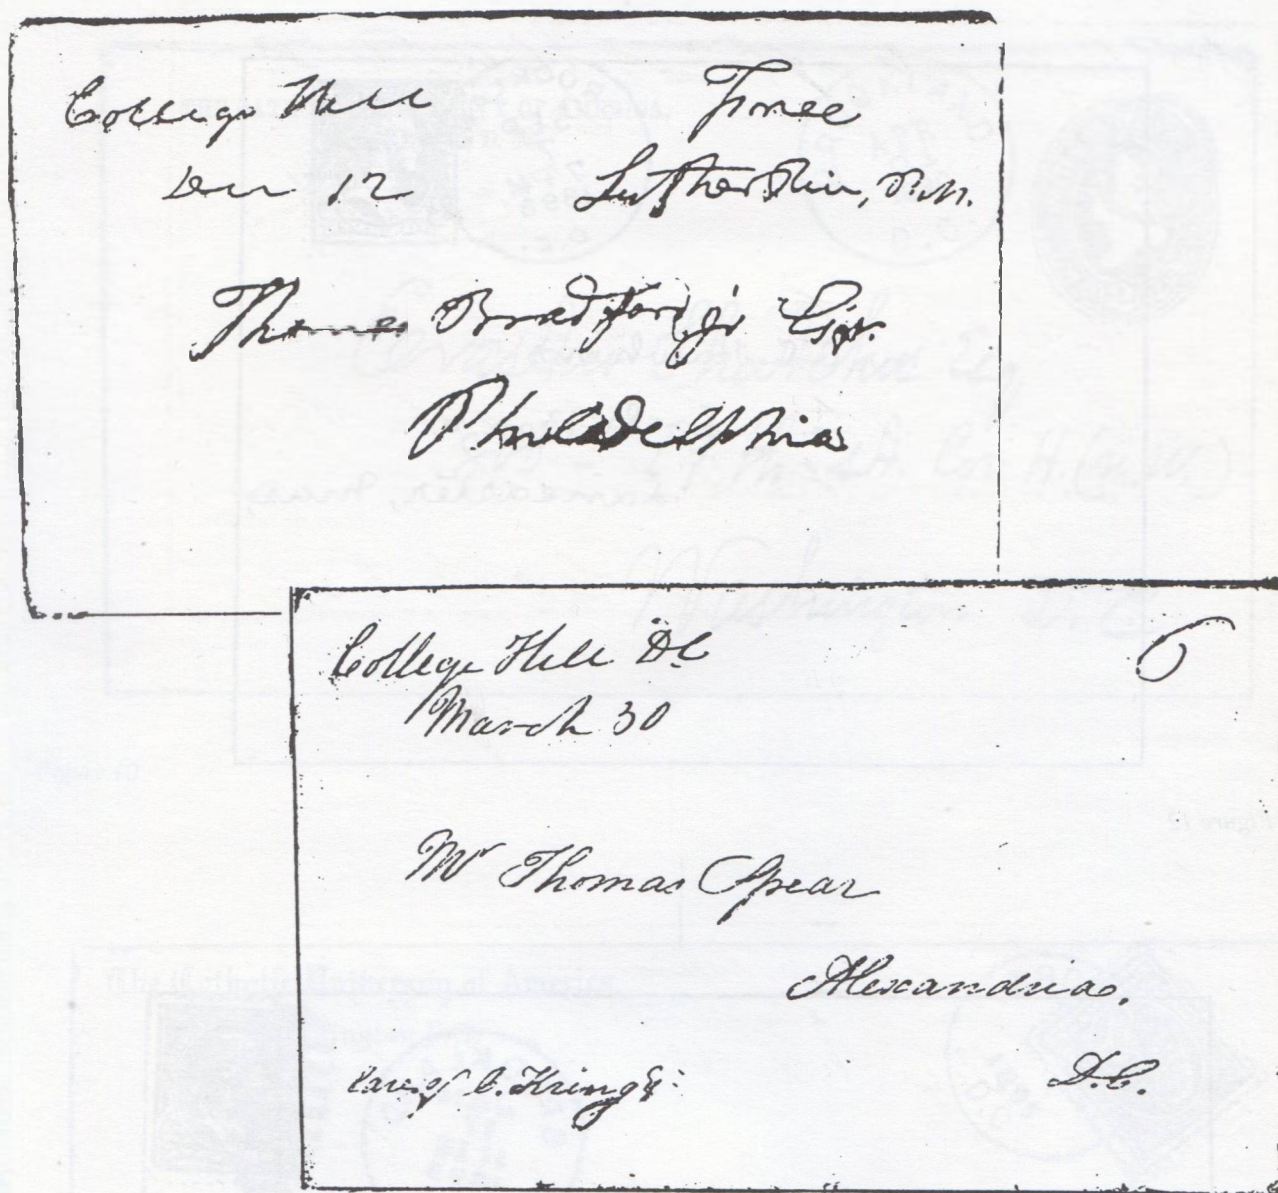 College Hill
12
Free
Luther Rice, P.M.
Thomas Bradford jr Esqr.
Philadelphia
College Hill DC
March 30
6
Mr Thomas Spear
Alexandria,
Care of C. King
D.C.